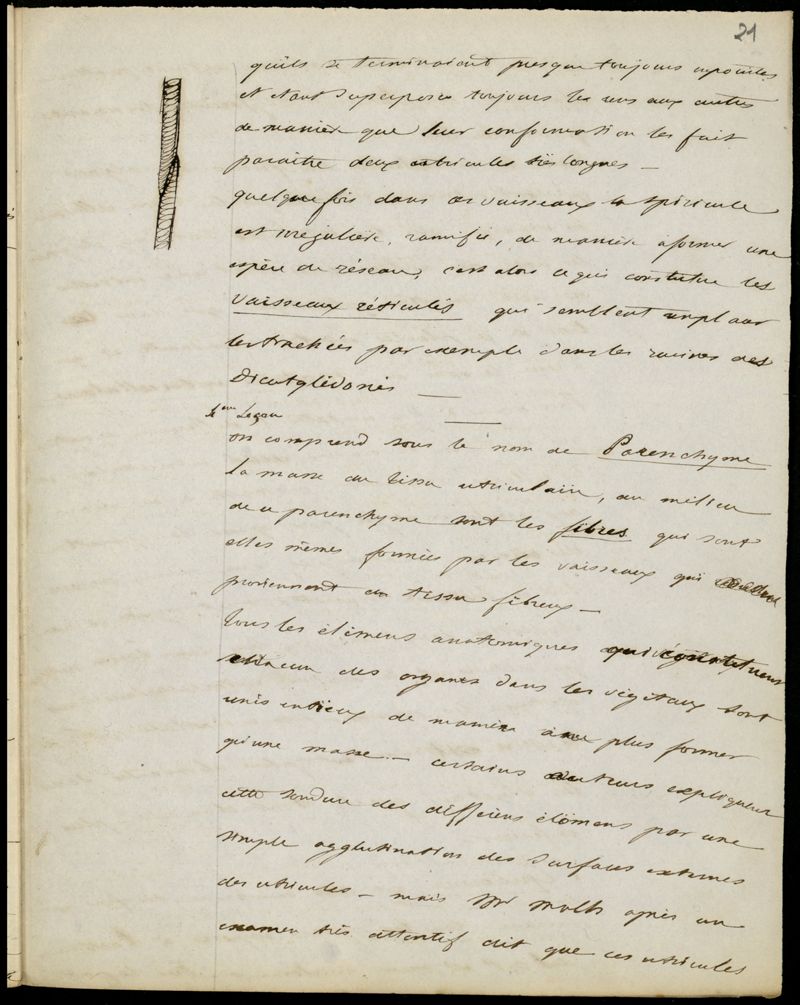 21
qu'ils se terminaient presque toujours en pointes
et étant superposés toujours les uns aux autres
de manière que leur conformation les fait
paraitre deux utricules très longues —
quelque fois dans ces vaisseaux la spiricule
est irrégulière, ramifiée, de manière à former une
espèce de réseau, c'est alors ce qui constitue les
vaisseaux réticulés qui semblent remplacer
les trachées par exemple dans les racines des
Dicotylédonés —
Leçon
on comprend sous le nom de Parenchyme
la masse du tissu utriculaire, au milieu
de ce parenchyme sont les fibres qui sont
elles mêmes formées par les vaisseaux qui
proviennent du tissu fibreux —
Tous les élémens anatomiques qui constituent
chacun des organes dans les végétaux sont
unis entr'eux de manière à ne plus former
qu'une masse — certains auteurs expliquent
cette soudure des différens élémens par une
simple agglutination des surfaces externes
des utricules — mais Mr après un
examen très attentif dit que ces utricules